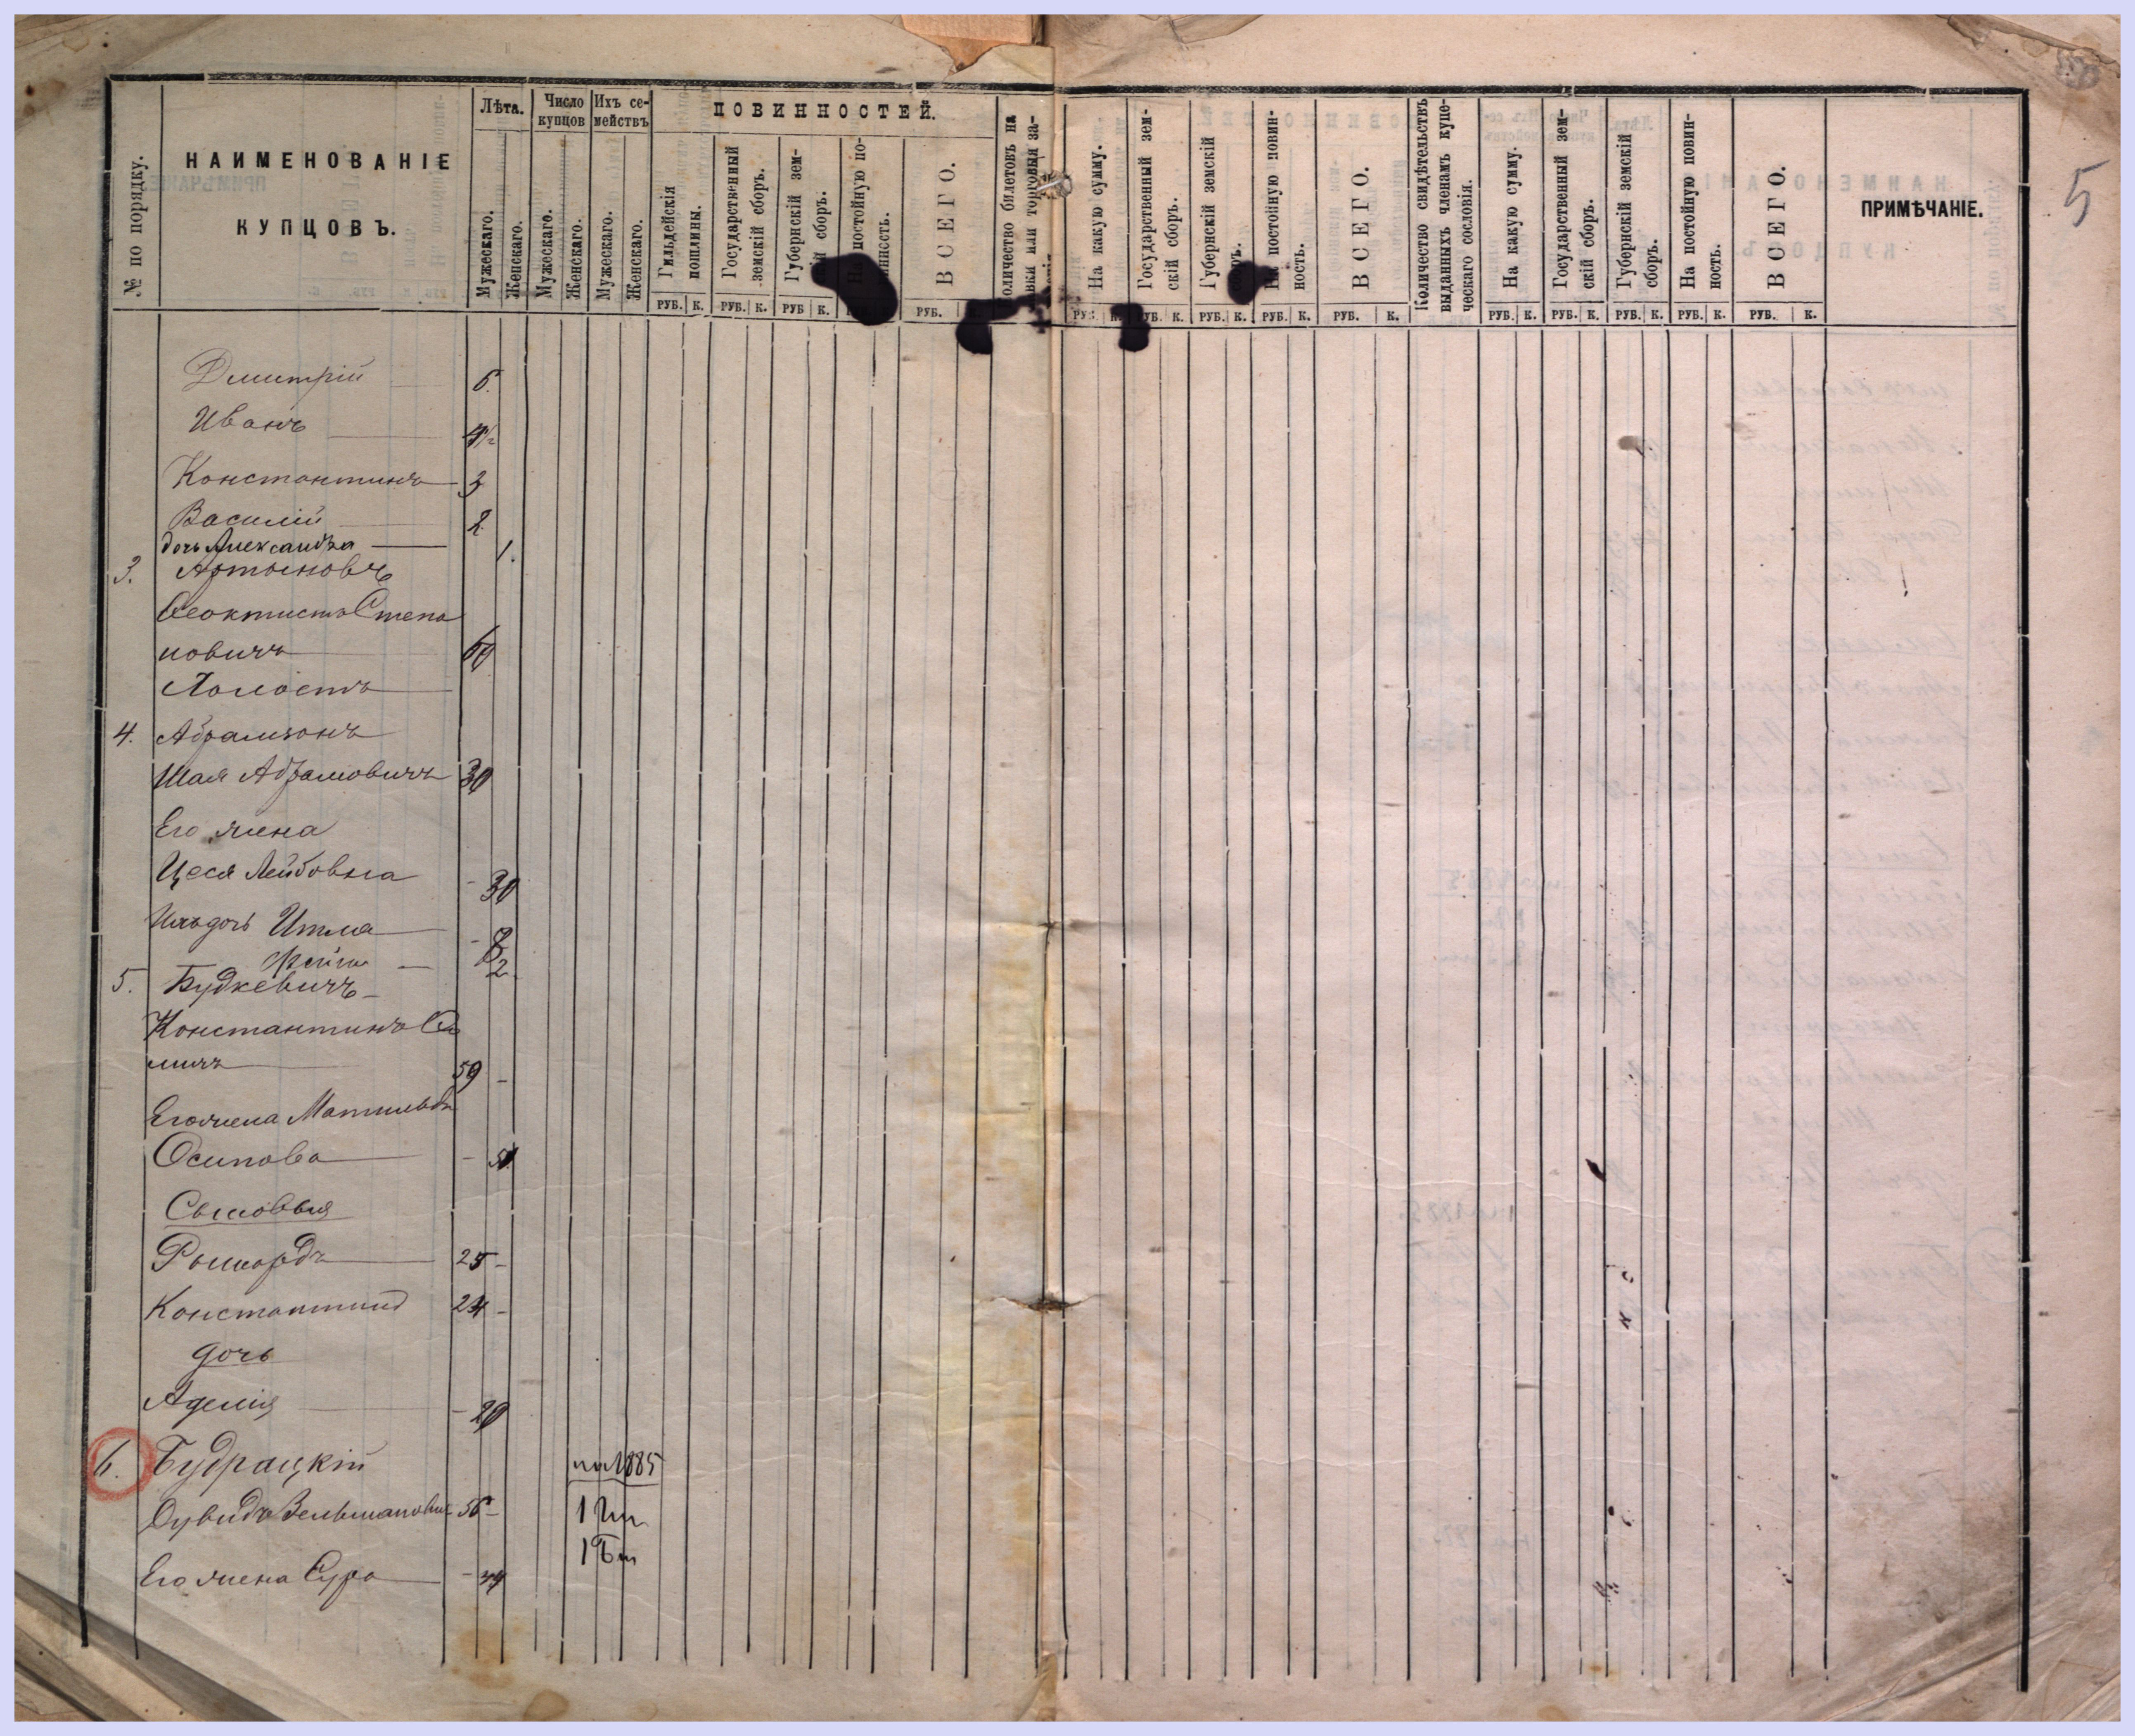 № по порядку.
НАИМЕНОВАНІЕ
КУПЦОВЪ.
Лѣта.
Мужескаго.
Женскаго.
Число
купцов
Мужескаго.
Женскаго.
Ихъ се-
мействъ
Мужескаго.
Женскаго.
ПОВИННОСТЕЙ.
Гильдейскія
пошлины.
РУБ. К.
Государственный
земскій сборъ.
РУБ. К.
Губернскій зем-
сборъ.
РУБ К.
На постойную по-
ВСЕГО.
РУБ.
оличество билетовъ на
или торговыя за-
На какую сумму.
РУБ. К.
Государственный зем-
скій сборъ.
УБ. К.
Губернскій земскій
сборъ.
РУБ. К.
На постойную повин-
ность.
РУБ. К.
ВСЕГО.
РУБ. К.
Количество свидѣтельствъ
выданныхъ членамъ купе-
ческаго сословія.
На какую сумму.
РУБ. К.
Государственный зем-
скій сборъ.
РУБ. К.
Губернскій земскій
сборъ.
РУБ. К.
На постойную повин-
ность.
РУБ. К.
ВСЕГО.
РУБ. К.
ПРИМѢЧАНІЕ.
5
Дмитрій 6.
Иванъ
Константинъ 3
Василій 2
дочь Александра 1.
3. Артыновъ
Ѳеоктистъ Степа
новичъ 60
Холостъ
4. Абрамзонъ
Шая Абрамовичъ 30
Его жена
Цеся Лейбовна - 30
Ихъ дочь Итма - 8
Фейга - 2
5. Будкевичъ
Константинъ
59 -
Его жена Матильда
Осипова -
Сыновья
Рышардъ 25 -
Константинъ 24 -
дочь
Аделія - 20
6. Будрацкій на 1885
Дувидъ Зельмановичъ 56 - 1 Гил
Его жена Сура - 1 Бил